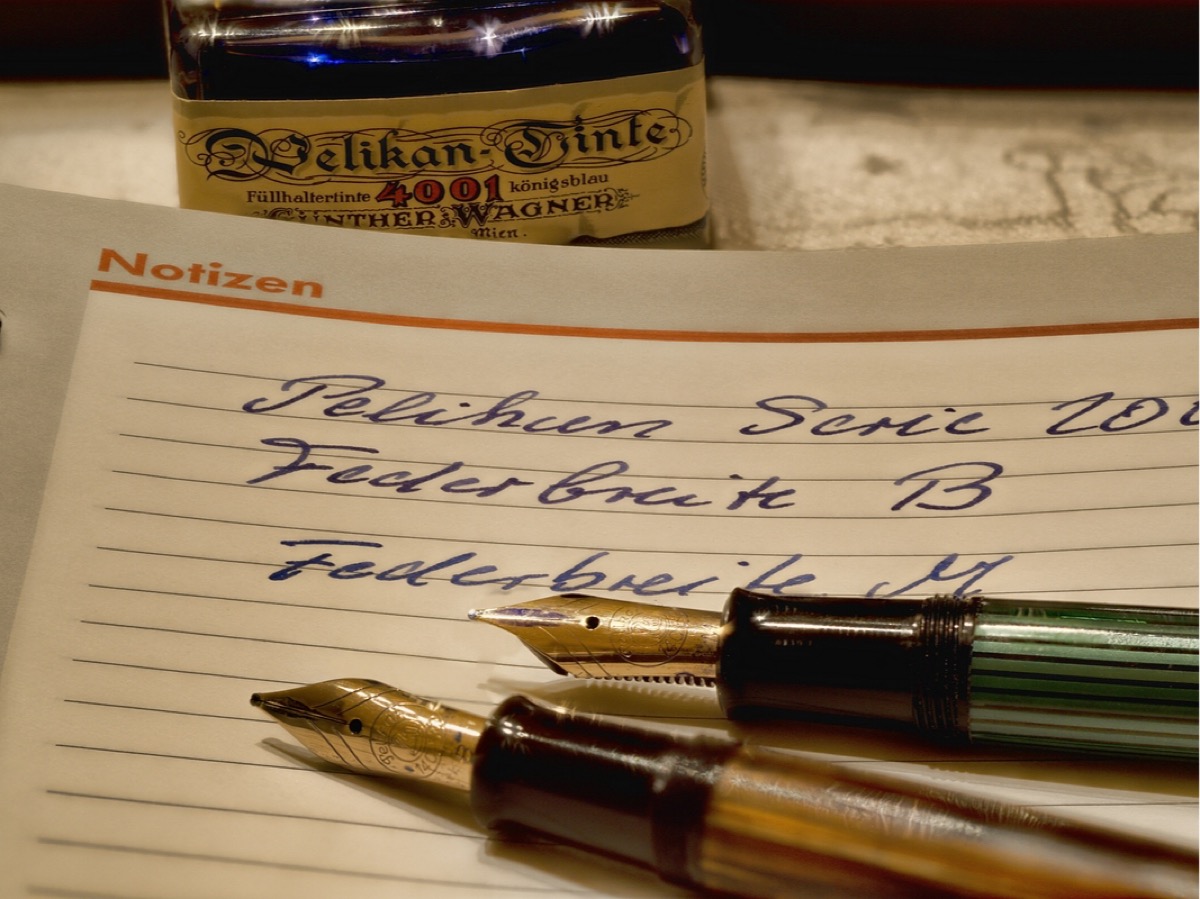 Pelikan-Tinte
Füllhaltertinte 4001 königsblau
GÜNTHER WAGNER
Wien.
Notizen
Pelikan Serie
Federbreite B
Federbreite M